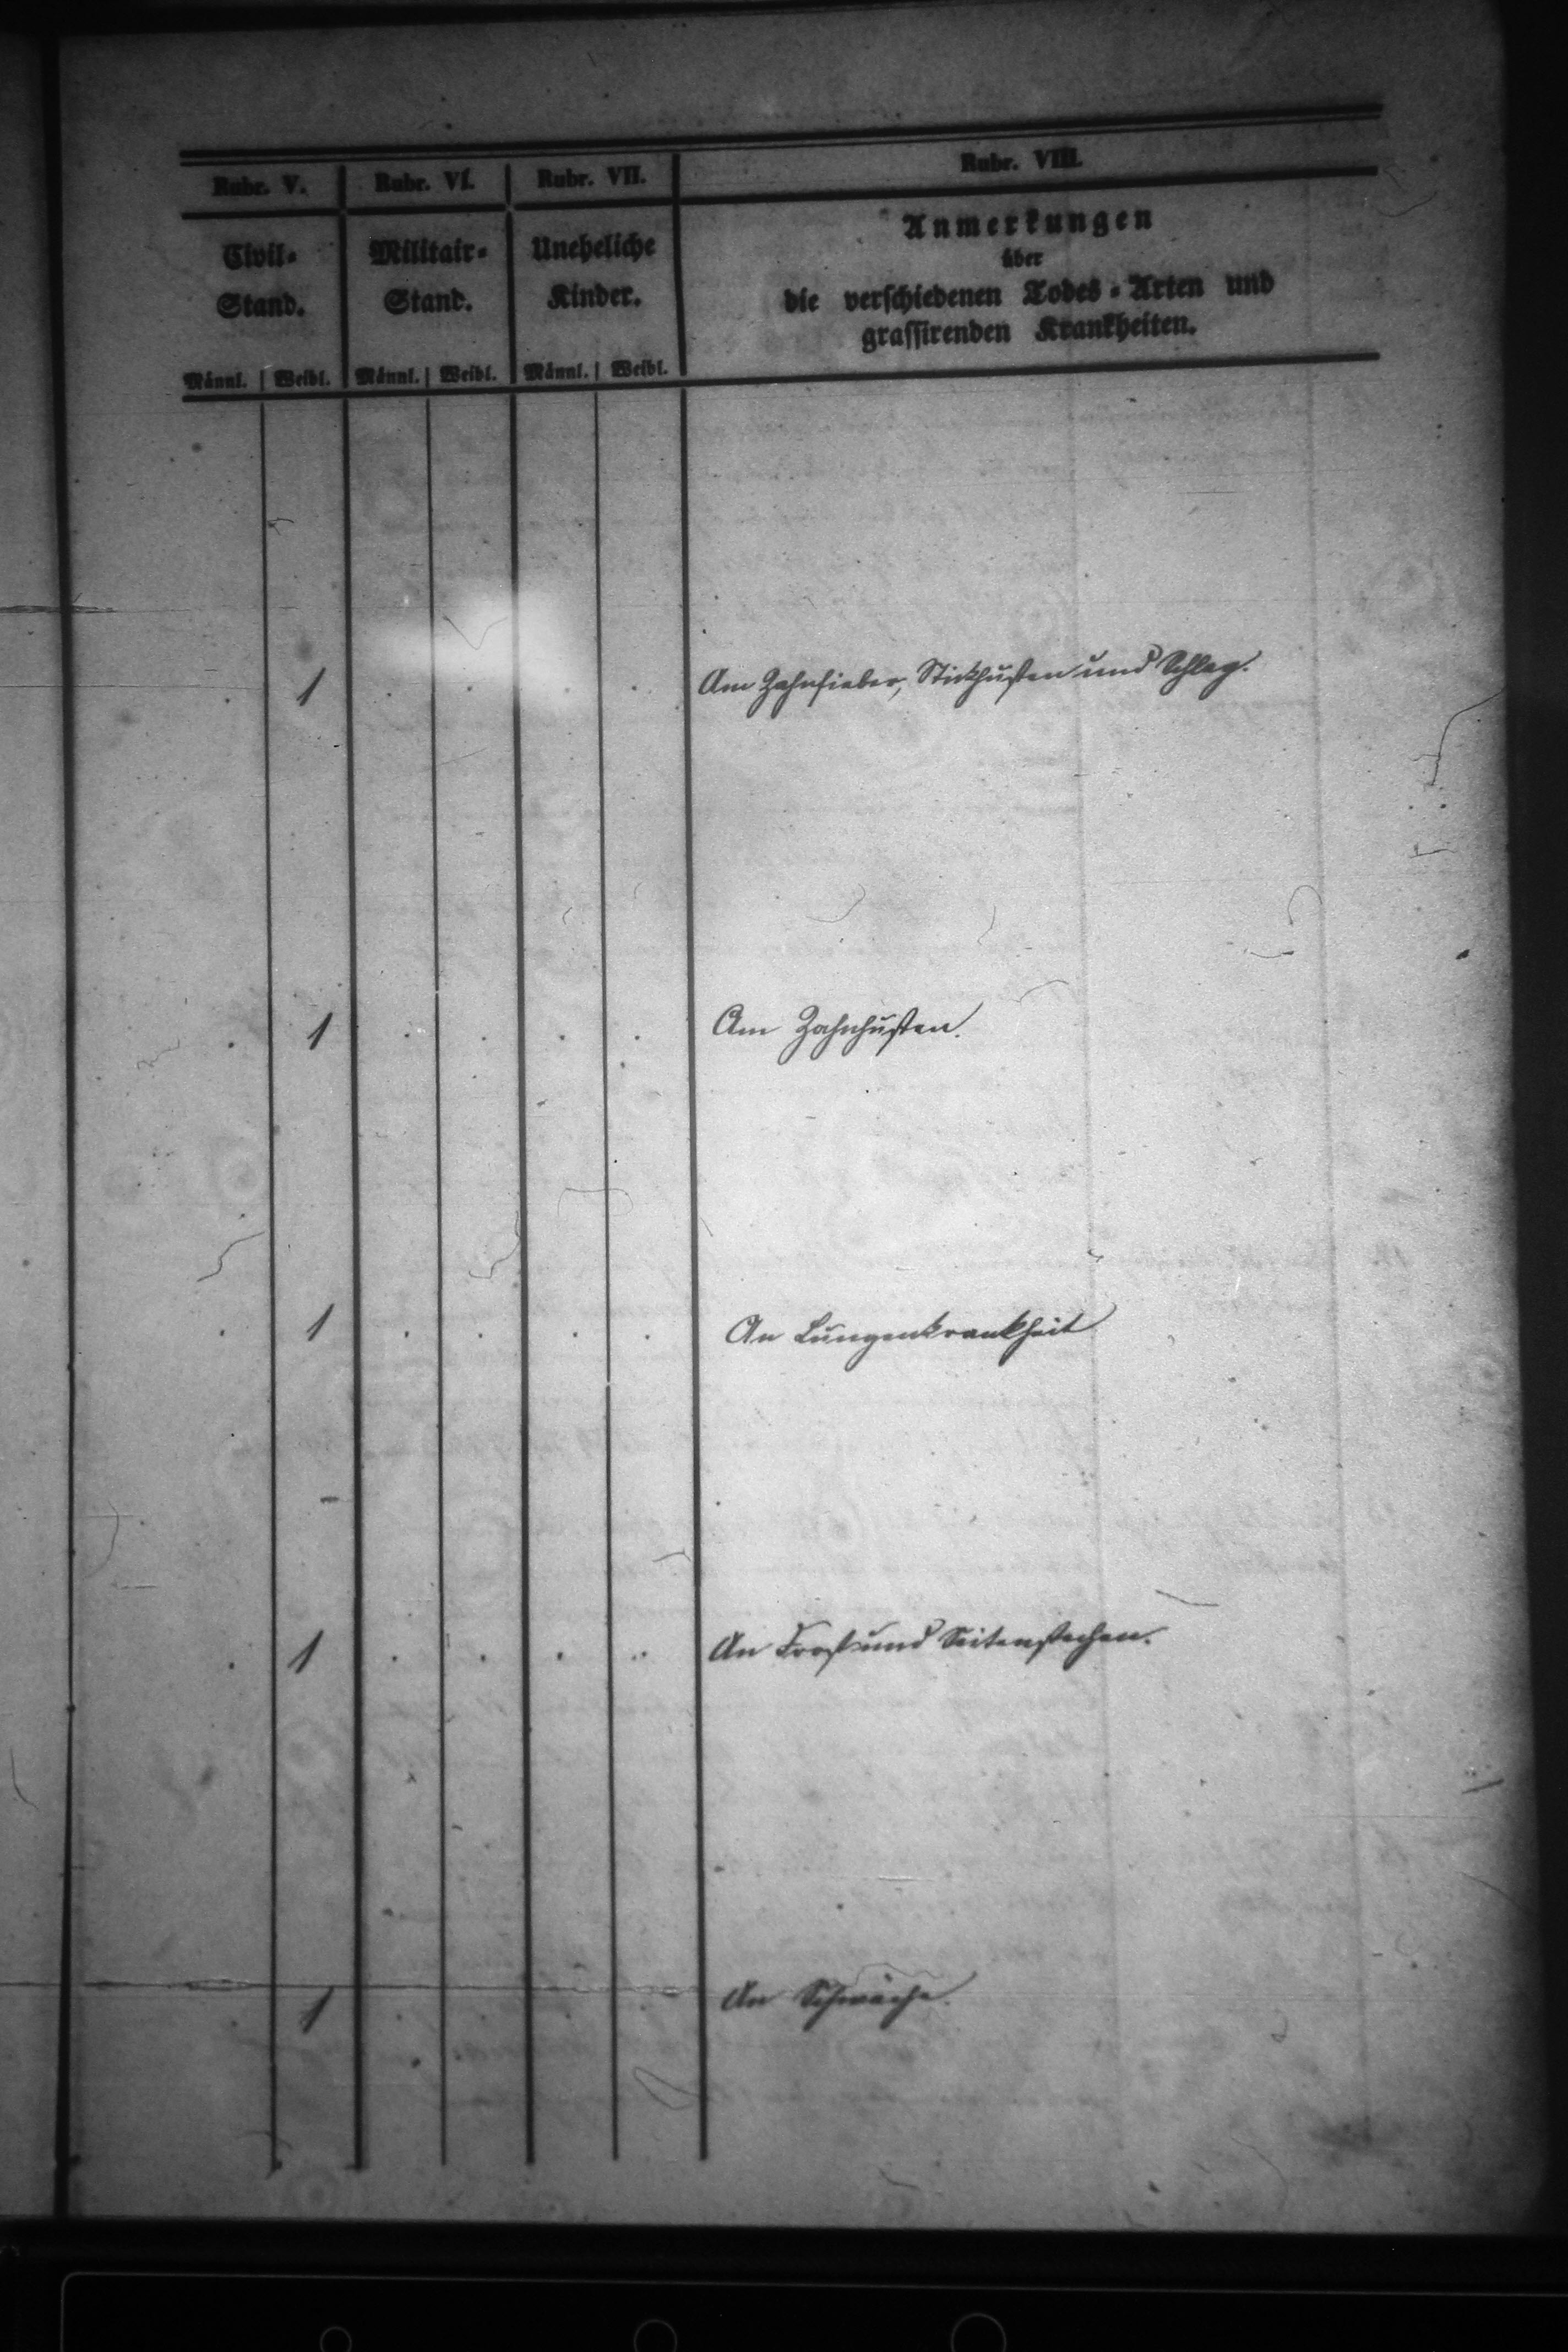 Rubr. V. Rubr. VI. Rubr. VII. Rubr. VIII.
Civil- Militair- Uneheliche Anmerkungen
Stand. Stand. Kinder. über
die verschiedenen Todes-Arten und
grassirenden Krankheiten.
Männl. Weibl. Männl. Weibl. Männl. Weibl.
. 1 . . . . Am Zahnfieber, Stickhusten und Schlag.
. 1 . . . . Am Zahnhusten.
. 1 . . . . An Lungenkrankheit
. 1 . . . . An Frost und Seitenstechen.
1 An Schwäche.